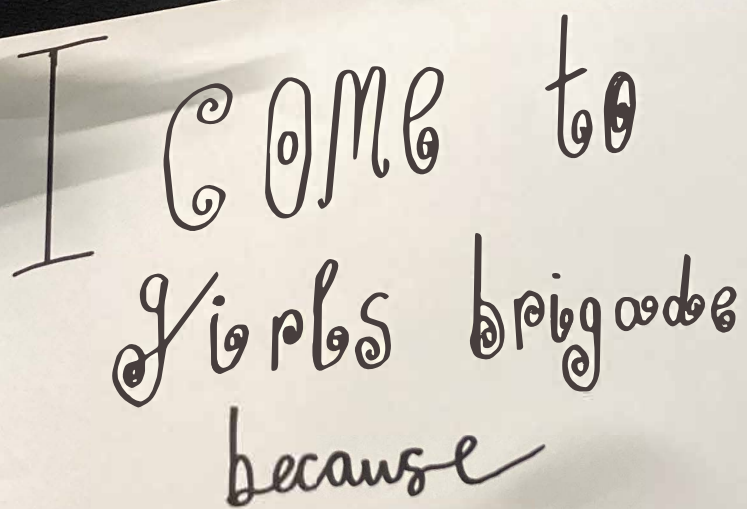 I COME to
girls brigade
because